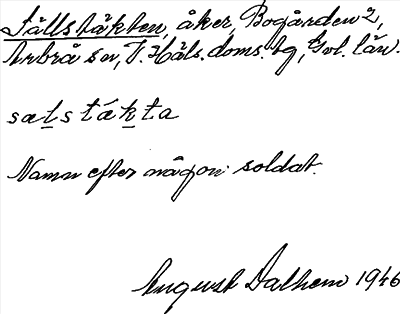 Sällstäkten, åker, Bogården 2,
Arbrå sn, V. Häls. doms. tg, Gvl. län.
sæls tá k ta
Namn efter någon soldat.
August Dalhem 1946